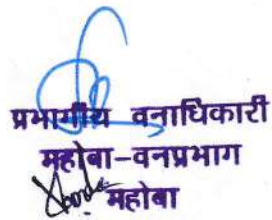 प्रभागीय वनाधिकारी
महोबा-वनप्रभाग
महोबा